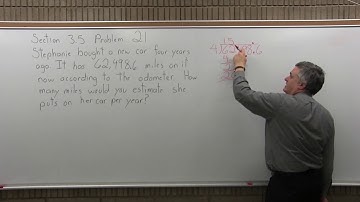 Section 3.5 Problem 21
Stephanie bought a new car four years
ago. It has 62,498.6 miles on it
now according to the odometer. How
many miles would you estimate she
puts on her car per year?
15
4